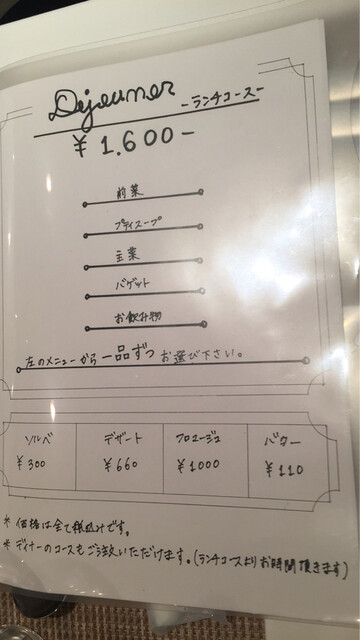 Dejeuner
-ランチコース-
¥1,600-
前菜
プティスープ
主菜
バゲット
お飲み物
左のメニューから一品ずつお選び下さい。
ソルベ デザート フロマージュ バター
¥300 ¥660 ¥1000 ¥110
* 価格は全て税込みです。
* ディナーのコースもご注文いただけます。(ランチコースよりお時間頂きます)